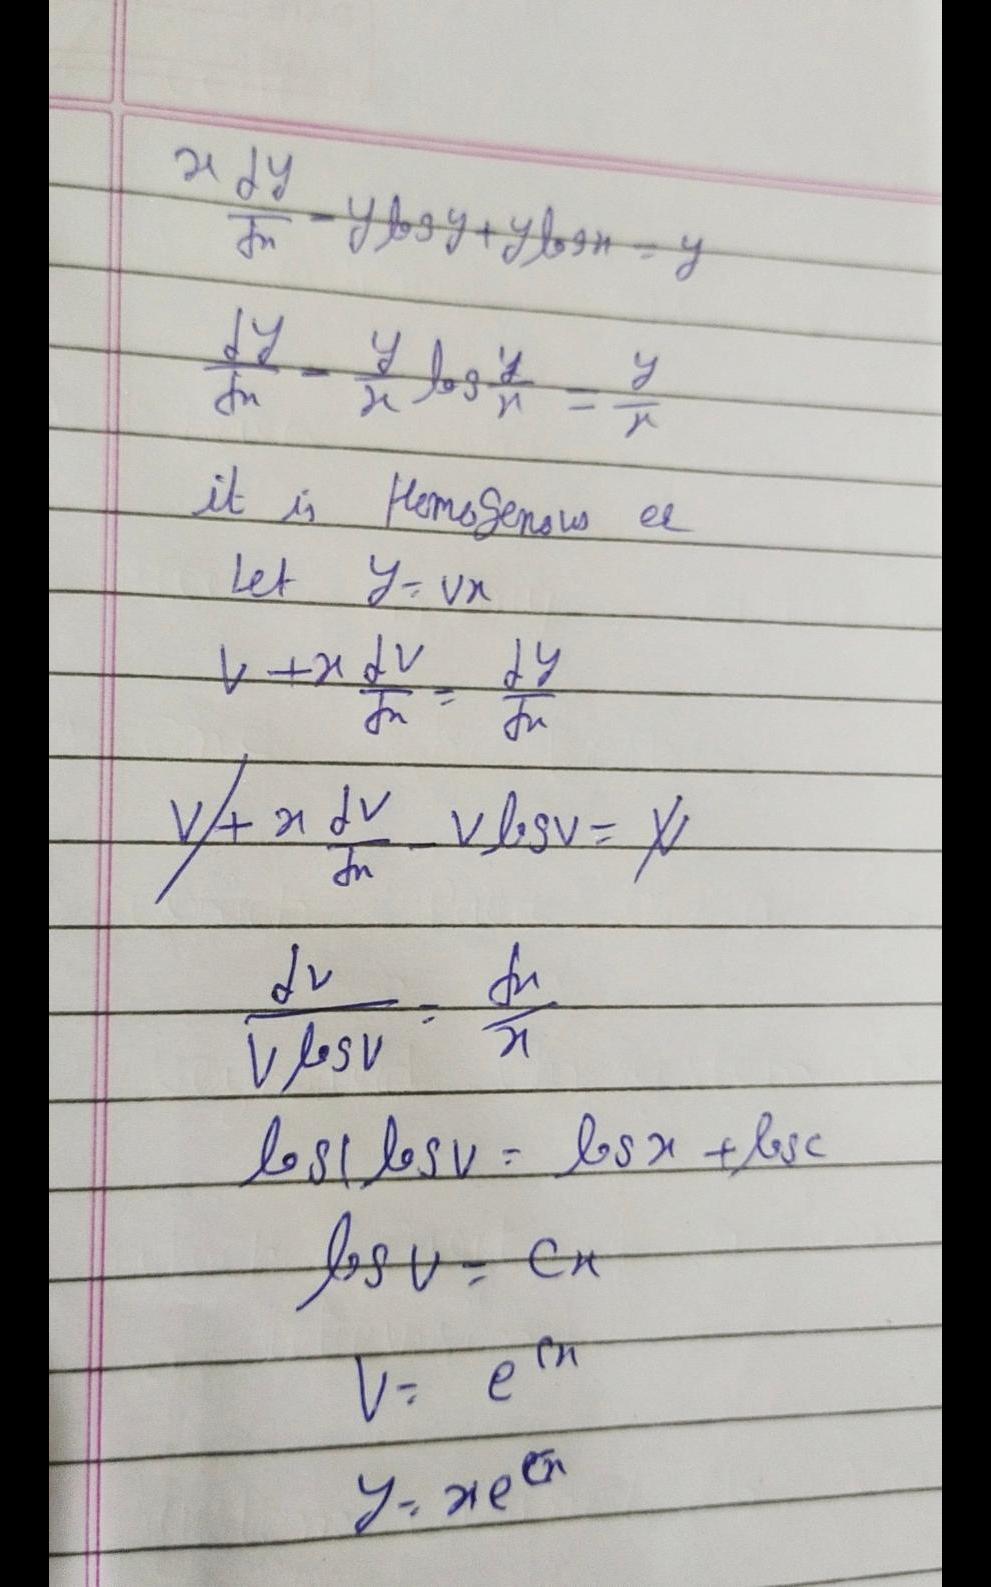 x dy/dx - y log y + y log x = y
dy/dx - y/x log y/x = y/x
it is Homogenous
Let y = vx
v + x dv/dx = dy/dx
v + x dv/dx - v log v = v
dv/(v log v) = dx/x
log( log v = log x + log c
log v = cx
v = e^cx
y = xe^cx